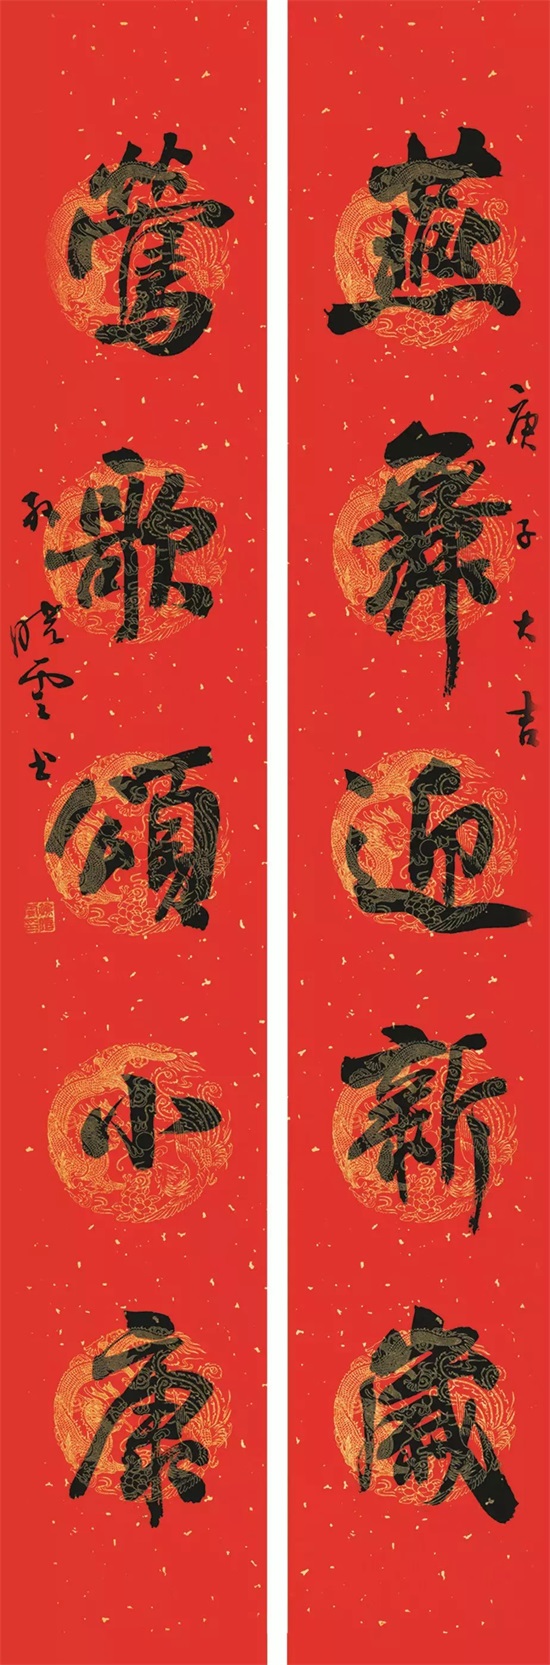 燕舞迎新歲
庚子大吉
鶯歌頌小康
曉雲書